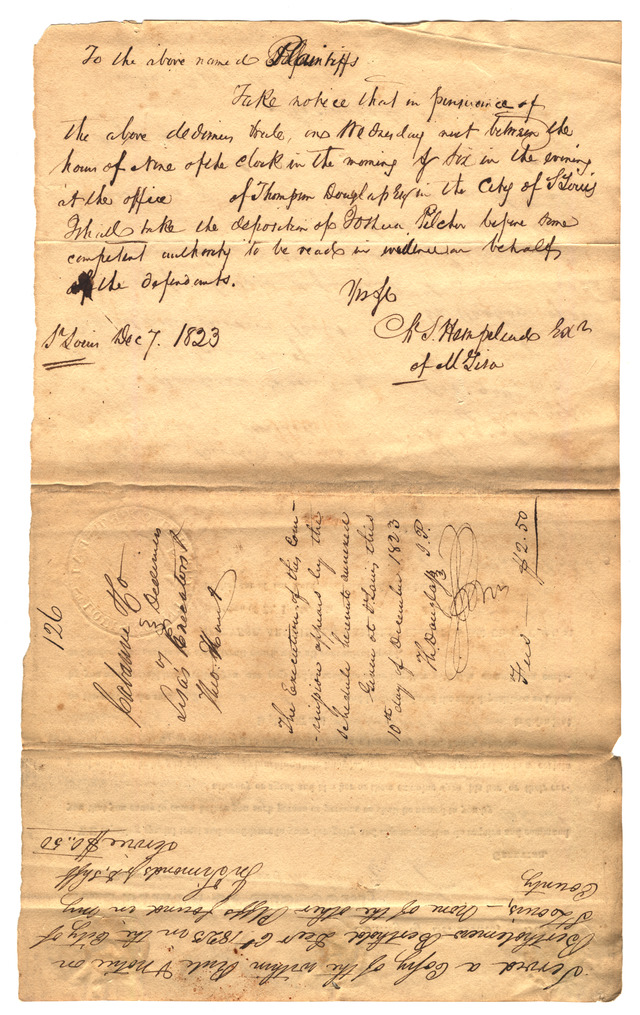 To the above named Plaintiffs
Take notice that in pursuance of
the above dedimus Rule, on Wednesday next between the
hours of Nine of the clock in the morning & Six in the evening
at the office of Thompson Douglass Esq in the City of St Louis
I shall take the deposition of Joshua Pilcher before some
competent authority to be read in evidence on behalf
of the defendants.
Yrs &c
St Louis Dec 7. 1823
S. Hempstead Exr
of M Lisa
126
Cabanne & Co
vs Dedimus
Lisa's Executors &
Theo. Hunt
The Execution of this Com-
-mission appears by the
schedule hereunto annexed
Given at St Louis this
10th day of December 1823
Th. Douglass J.P.
Fees — $2.50
Served a Copy of the within Rule & notice on
Bartholomew Berthold Decr 6th 1823 in the City of
St Louis, – None of the other Pltffs found in my
County
Jn Simonds jr d. Shff
Service $0..50